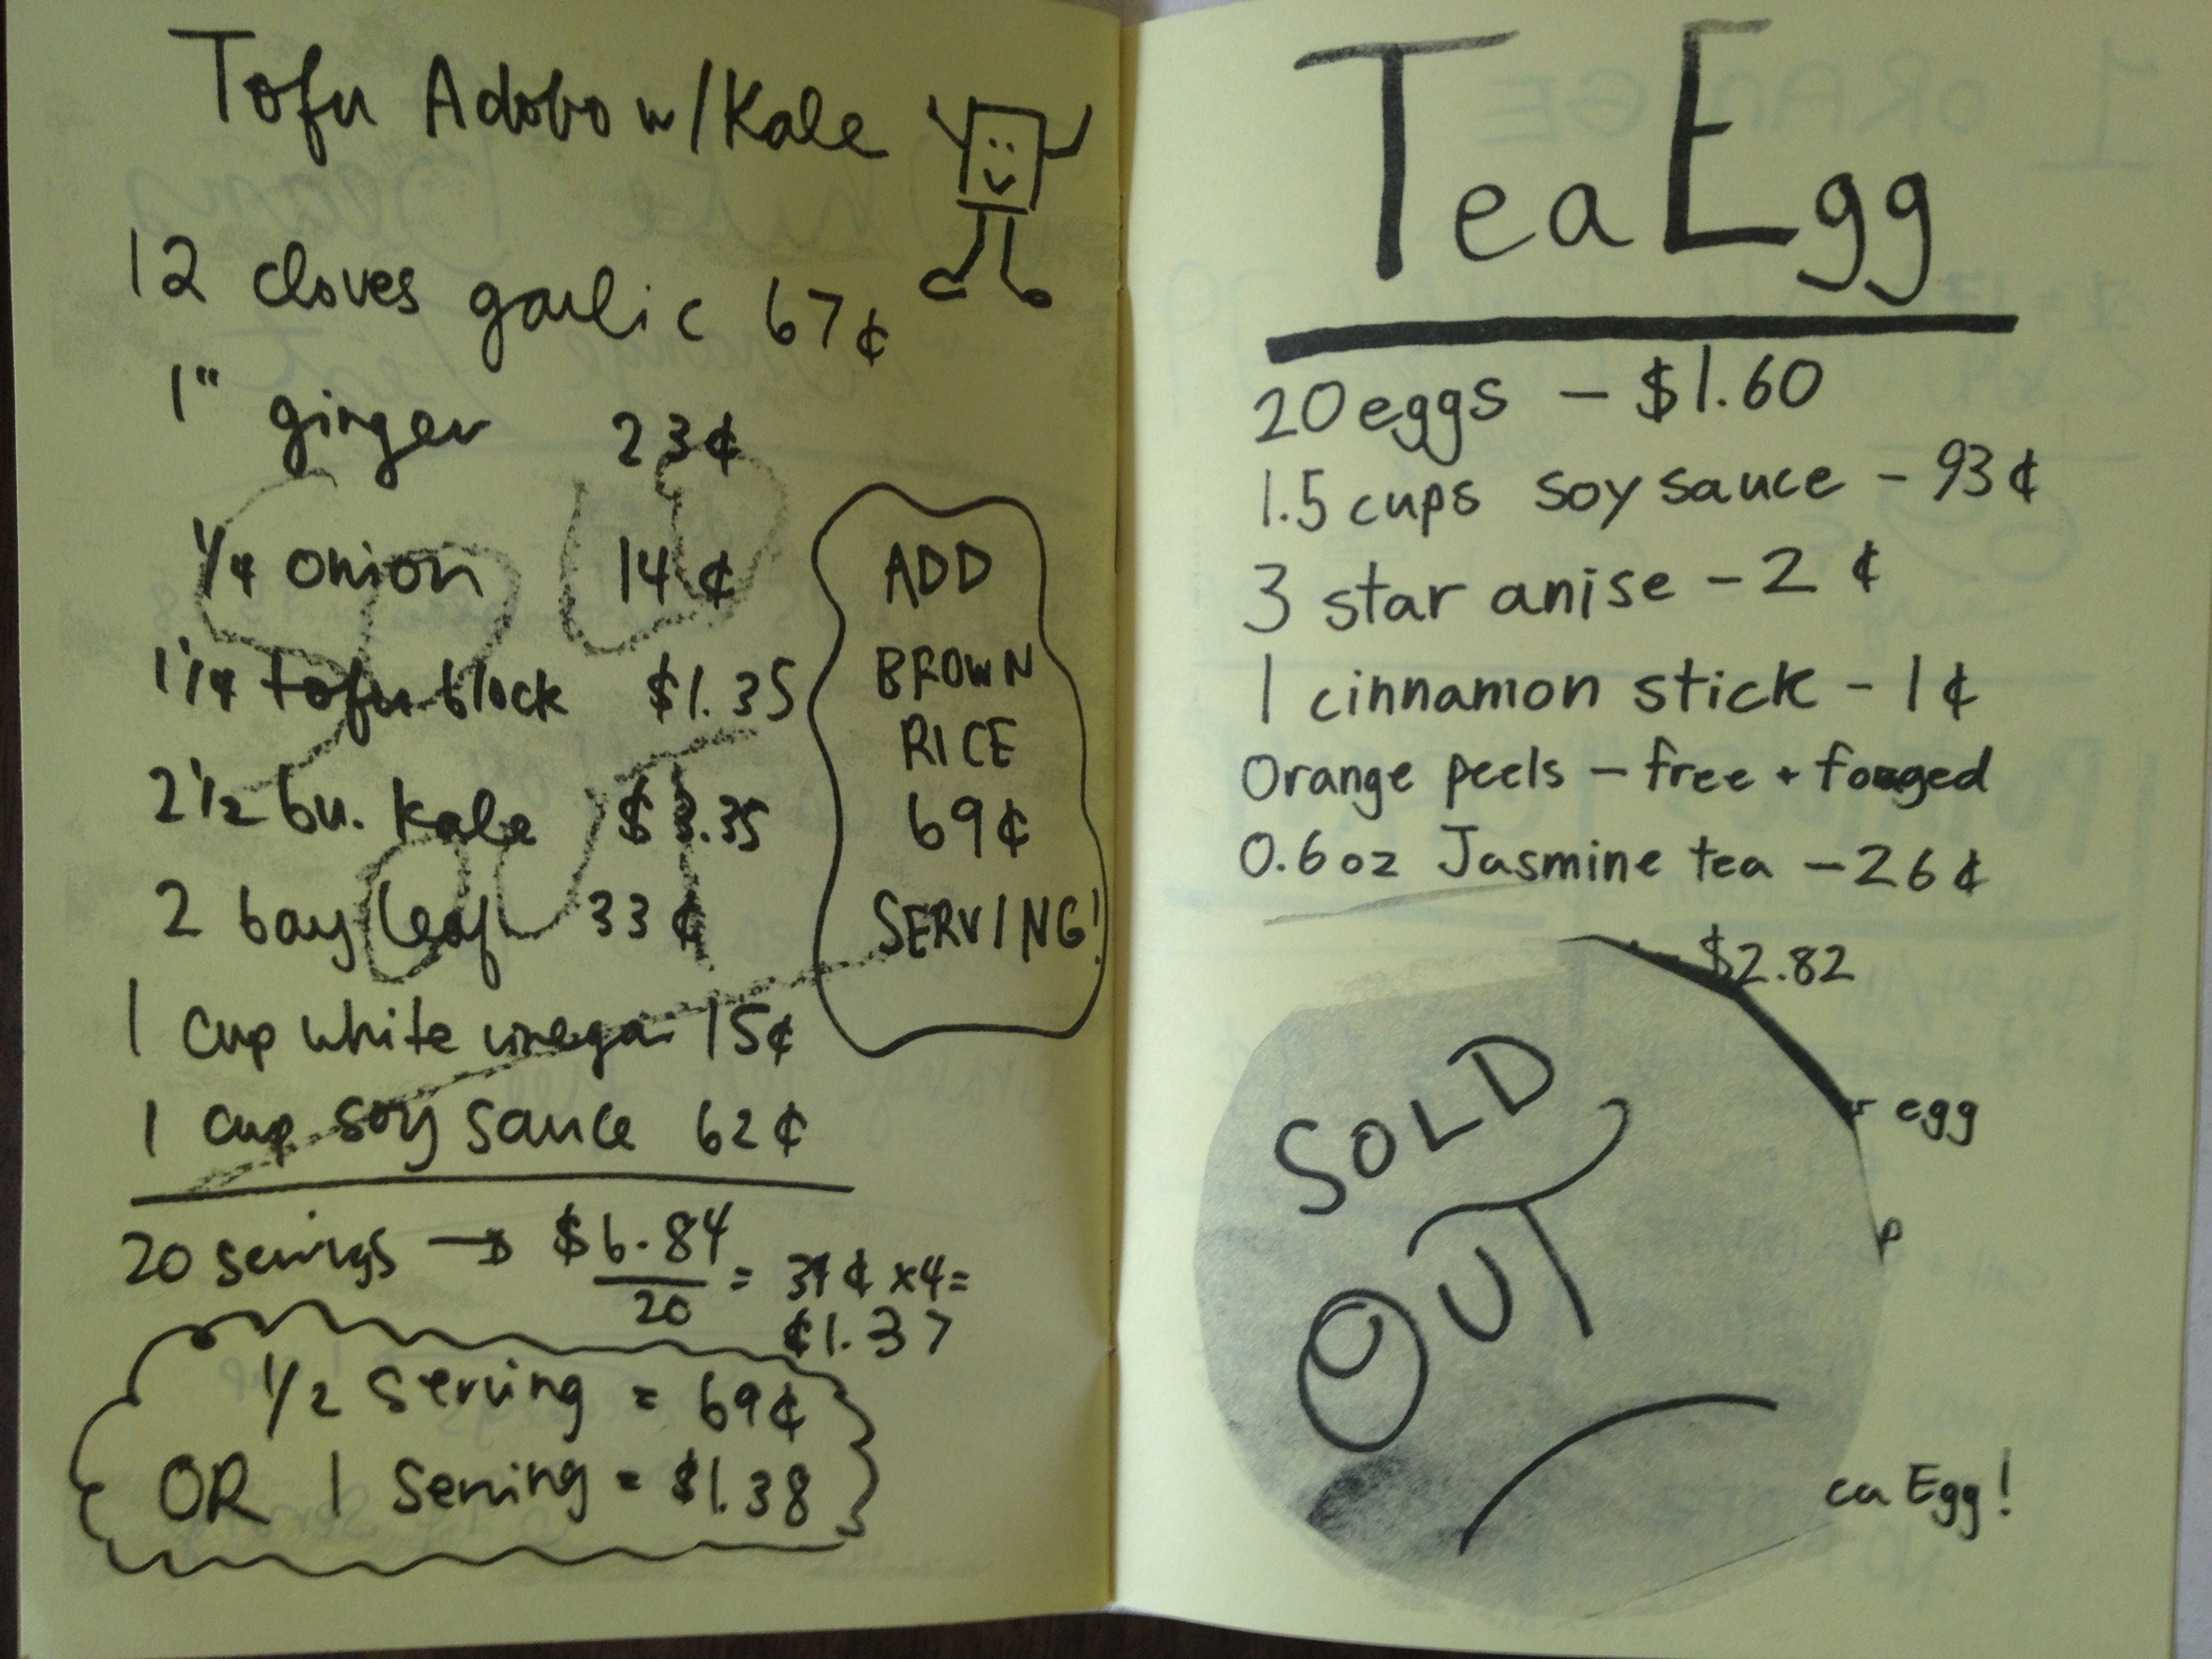 Tofu Adobo w/Kale
12 cloves garlic 67¢
1" ginger 23¢
1/4 onion 14¢
1 1/4 tofu block $1.35
2 1/2 bu. kale $3.35
2 bay leaf 33¢
1 cup white vinegar 15¢
1 cup soy sauce 62¢
20 servings → $6.84
20
= 34¢ x4=
$1.37
1/2 serving = 69¢
OR 1 serving = $1.38
SOLD
OUT
ADD
BROWN
RICE
69¢
SERVING!
Tea Egg
20 eggs – $1.60
1.5 cups soy sauce – 93¢
3 star anise – 2¢
1 cinnamon stick – 1¢
Orange peels – free + foraged
0.6oz Jasmine tea – 26¢
$2.82
egg
SOLD
OUT
Egg!